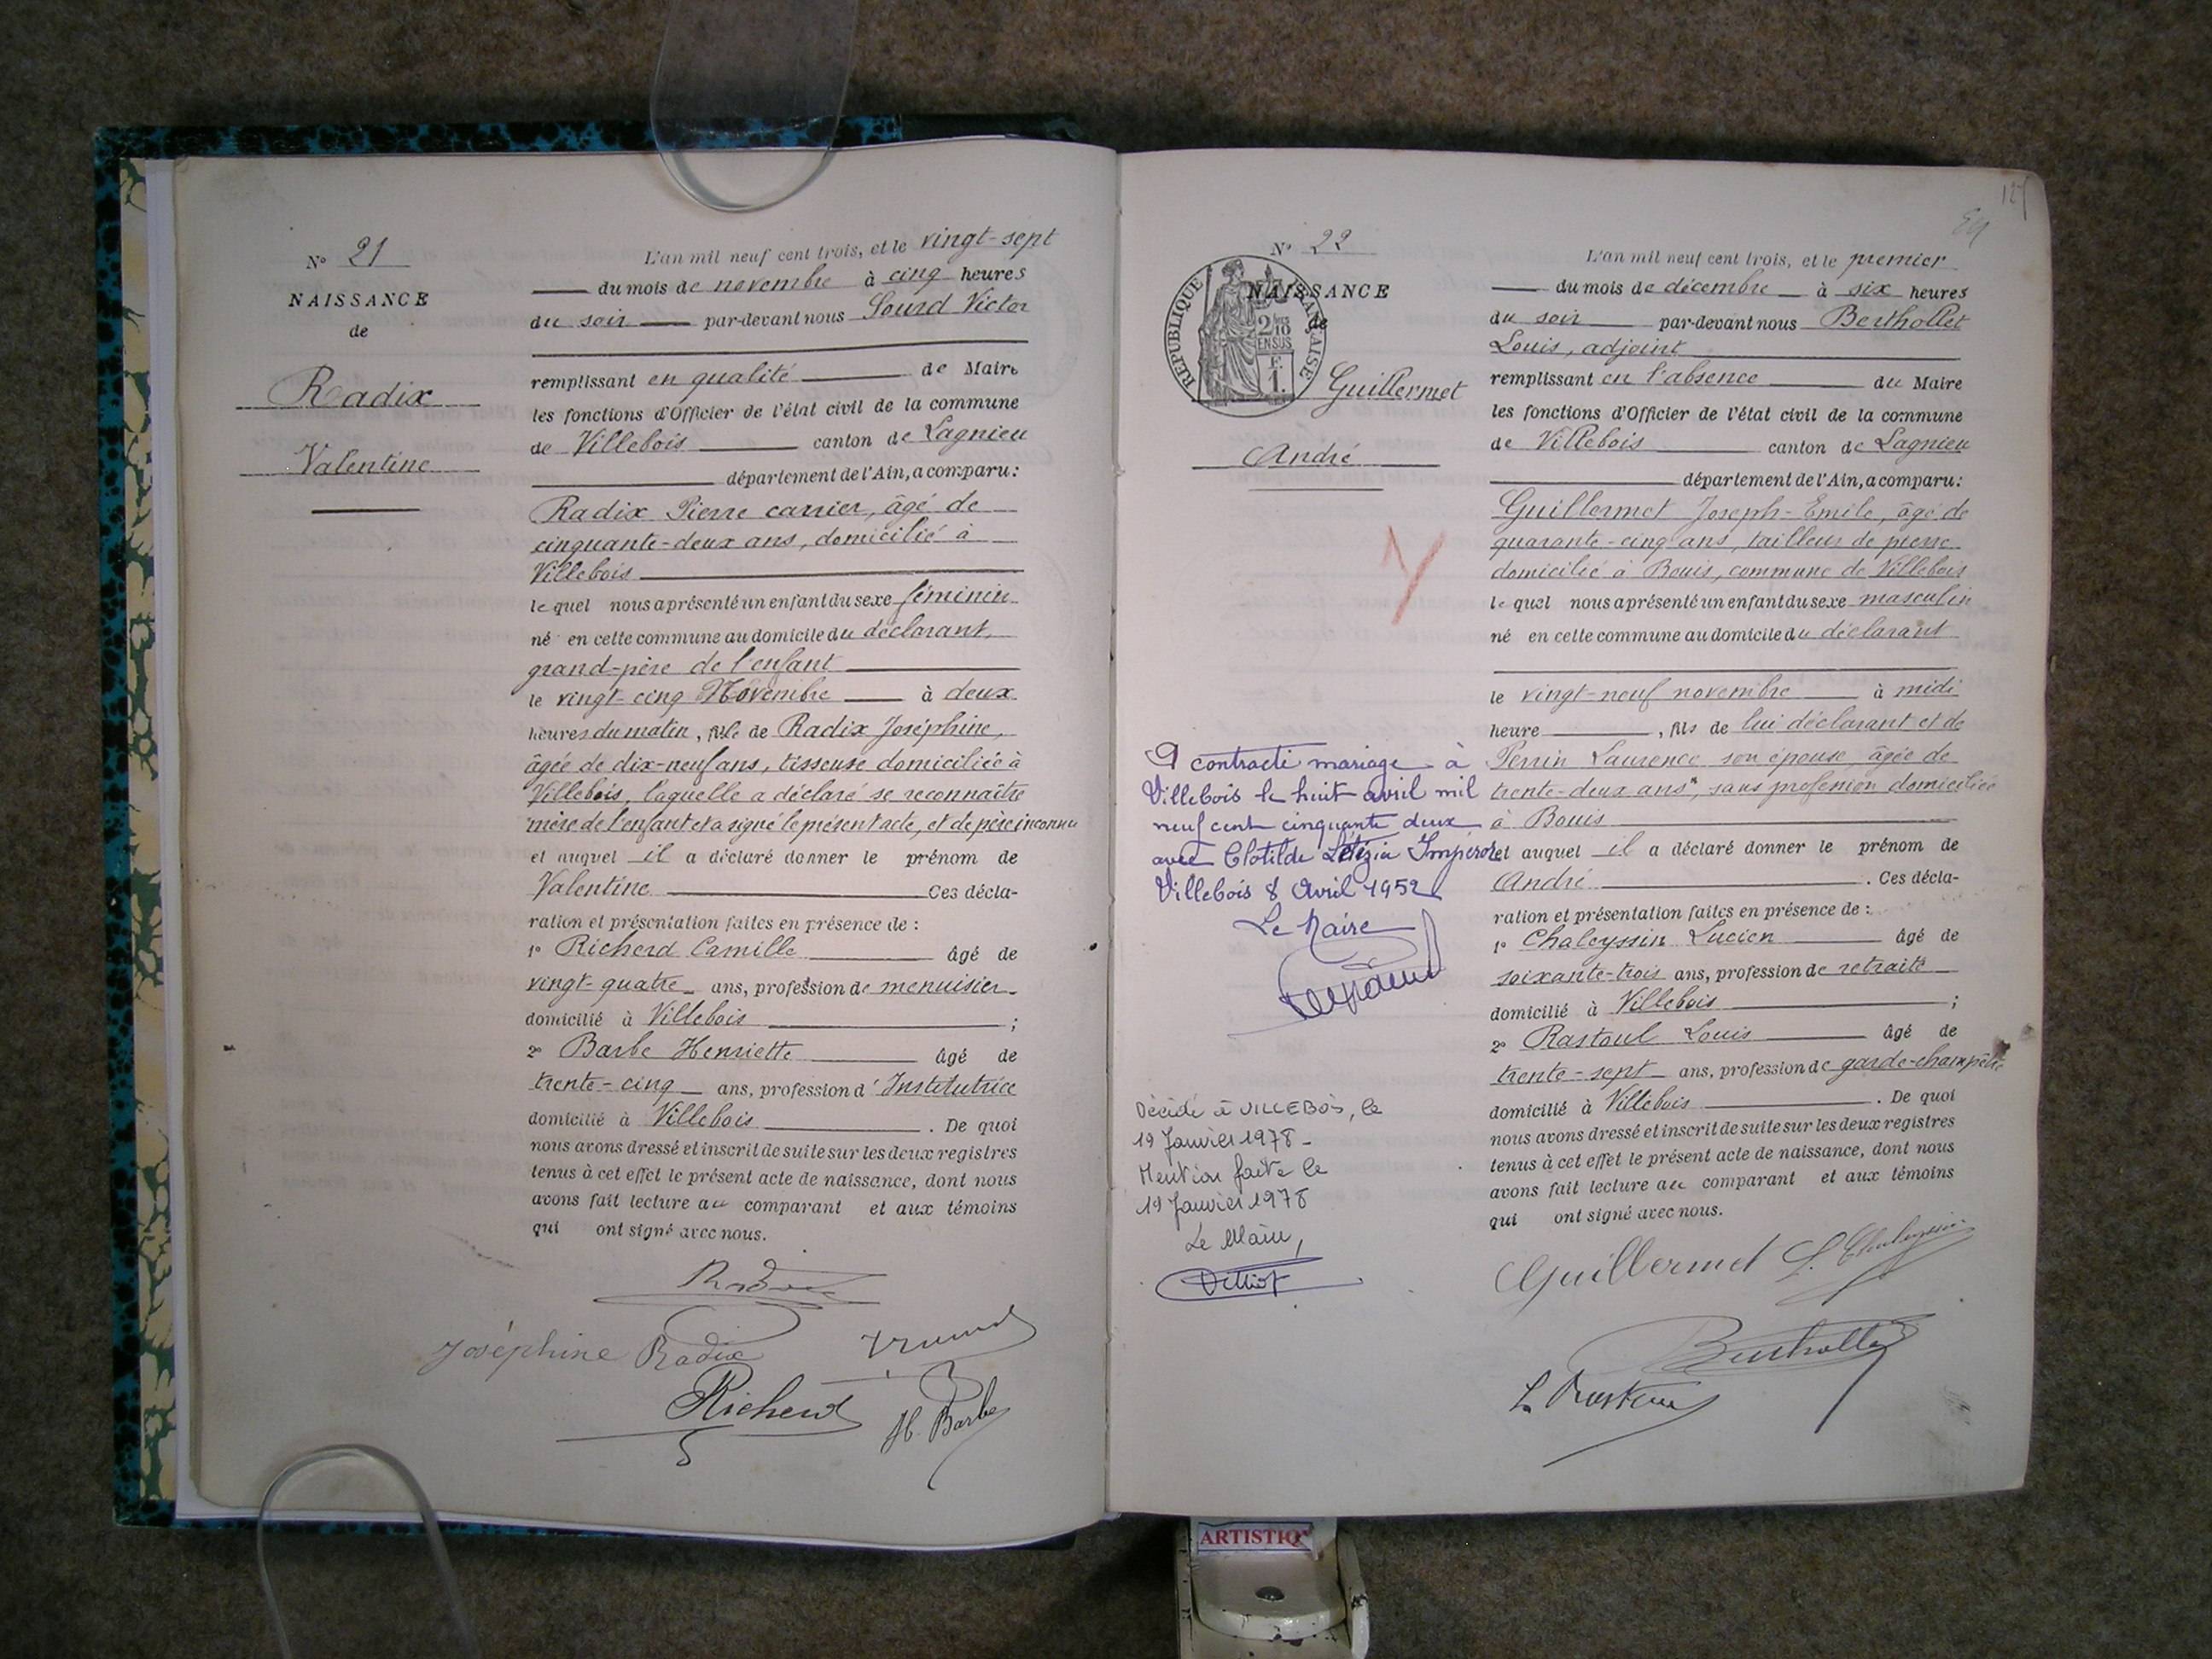 N° 21
NAISSANCE
de
Radix
Valentine
L'an mil neuf cent trois, et le vingt-sept
du mois de novembre à cinq heures
du soir par-devant nous Sourd Victor
remplissant en qualité de Maire
les fonctions d'Officier de l'état civil de la commune
de Villebois canton de Lagnieu
département de l'Ain, a comparu :
Radix Pierre carrier, âgé de
cinquante-deux ans, domicilié à
Villebois
lequel nous a présenté un enfant du sexe féminin
né en cette commune au domicile du déclarant,
grand-père de l'enfant
le vingt-cinq Novembre à deux
heures du matin, fille de Radix Joséphine,
âgée de dix-neuf ans, tisseuse domiciliée à
Villebois, laquelle a déclaré se reconnaître
mère de l'enfant et a signé le présent acte, et de père inconnu
et auquel il a déclaré donner le prénom de
Valentine Ces décla-
ration et présentation faites en présence de :
1° Richerd Camille âgé de
vingt-quatre ans, profession de menuisier
domicilié à Villebois ;
2° Barbe Henriette âgé de
trente-cinq ans, profession d'Institutrice
domicilié à Villebois . De quoi
nous avons dressé et inscrit de suite sur les deux registres
tenus à cet effet le présent acte de naissance, dont nous
avons fait lecture au comparant et aux témoins
qui ont signé avec nous.
Radix
Joséphine Radix
Richerd
H. Barbe
127
N° 22
NAISSANCE
de
REPUBLIQUE FRANÇAISE
2/10 EN SUS
F.
1.
Guillermet
André
L'an mil neuf cent trois, et le premier
du mois de décembre à six heures
du soir par-devant nous Berthollet
Louis, adjoint
remplissant en l'absence du Maire
les fonctions d'Officier de l'état civil de la commune
de Villebois canton de Lagnieu
département de l'Ain, a comparu :
Guillermet Joseph-Emile, âgé de
quarante-cinq ans, tailleur de pierre
domicilié à Bouis, commune de Villebois
lequel nous a présenté un enfant du sexe masculin
né en cette commune au domicile du déclarant
le vingt-neuf novembre à midi
heure , fils de lui déclarant et de
Perrin Laurence son épouse, âgée de
trente-deux ans, sans profession domiciliée
à Bouis
et auquel il a déclaré donner le prénom de
André . Ces décla-
ration et présentation faites en présence de :
1° Chaleyssin Lucien âgé de
soixante-trois ans, profession de retraité
domicilié à Villebois ;
2° Rastoul Louis âgé de
trente-sept ans, profession de garde-champêtre
domicilié à Villebois . De quoi
nous avons dressé et inscrit de suite sur les deux registres
tenus à cet effet le présent acte de naissance, dont nous
avons fait lecture au comparant et aux témoins
qui ont signé avec nous.
A contracté mariage à
Villebois le huit avril mil
neuf cent cinquante deux
avec Clotilde Létizia
Villebois 8 Avril 1952
Le Maire
Décédé à VILLEBOIS, le
19 Janvier 1978 -
Mention faite le
19 Janvier 1978
Le Maire,
Guillermet
Berthollet
ARTISTIQ